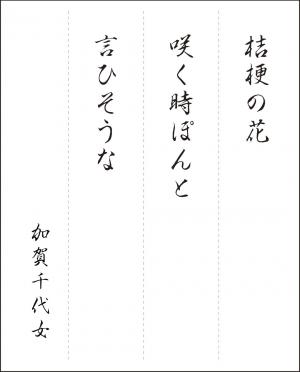 桔梗の花
咲く時ぽんと
言ひそうな
加賀千代女